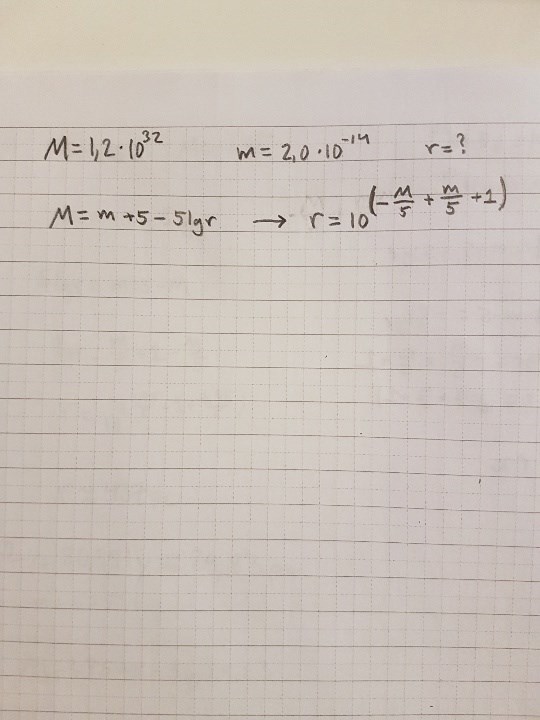 M = 1,2 · 10³² m = 2,0 · 10⁻¹⁴ r = ?
M = m + 5 - 5 lg r → r = 10^(-M/5 + m/5 + 1)